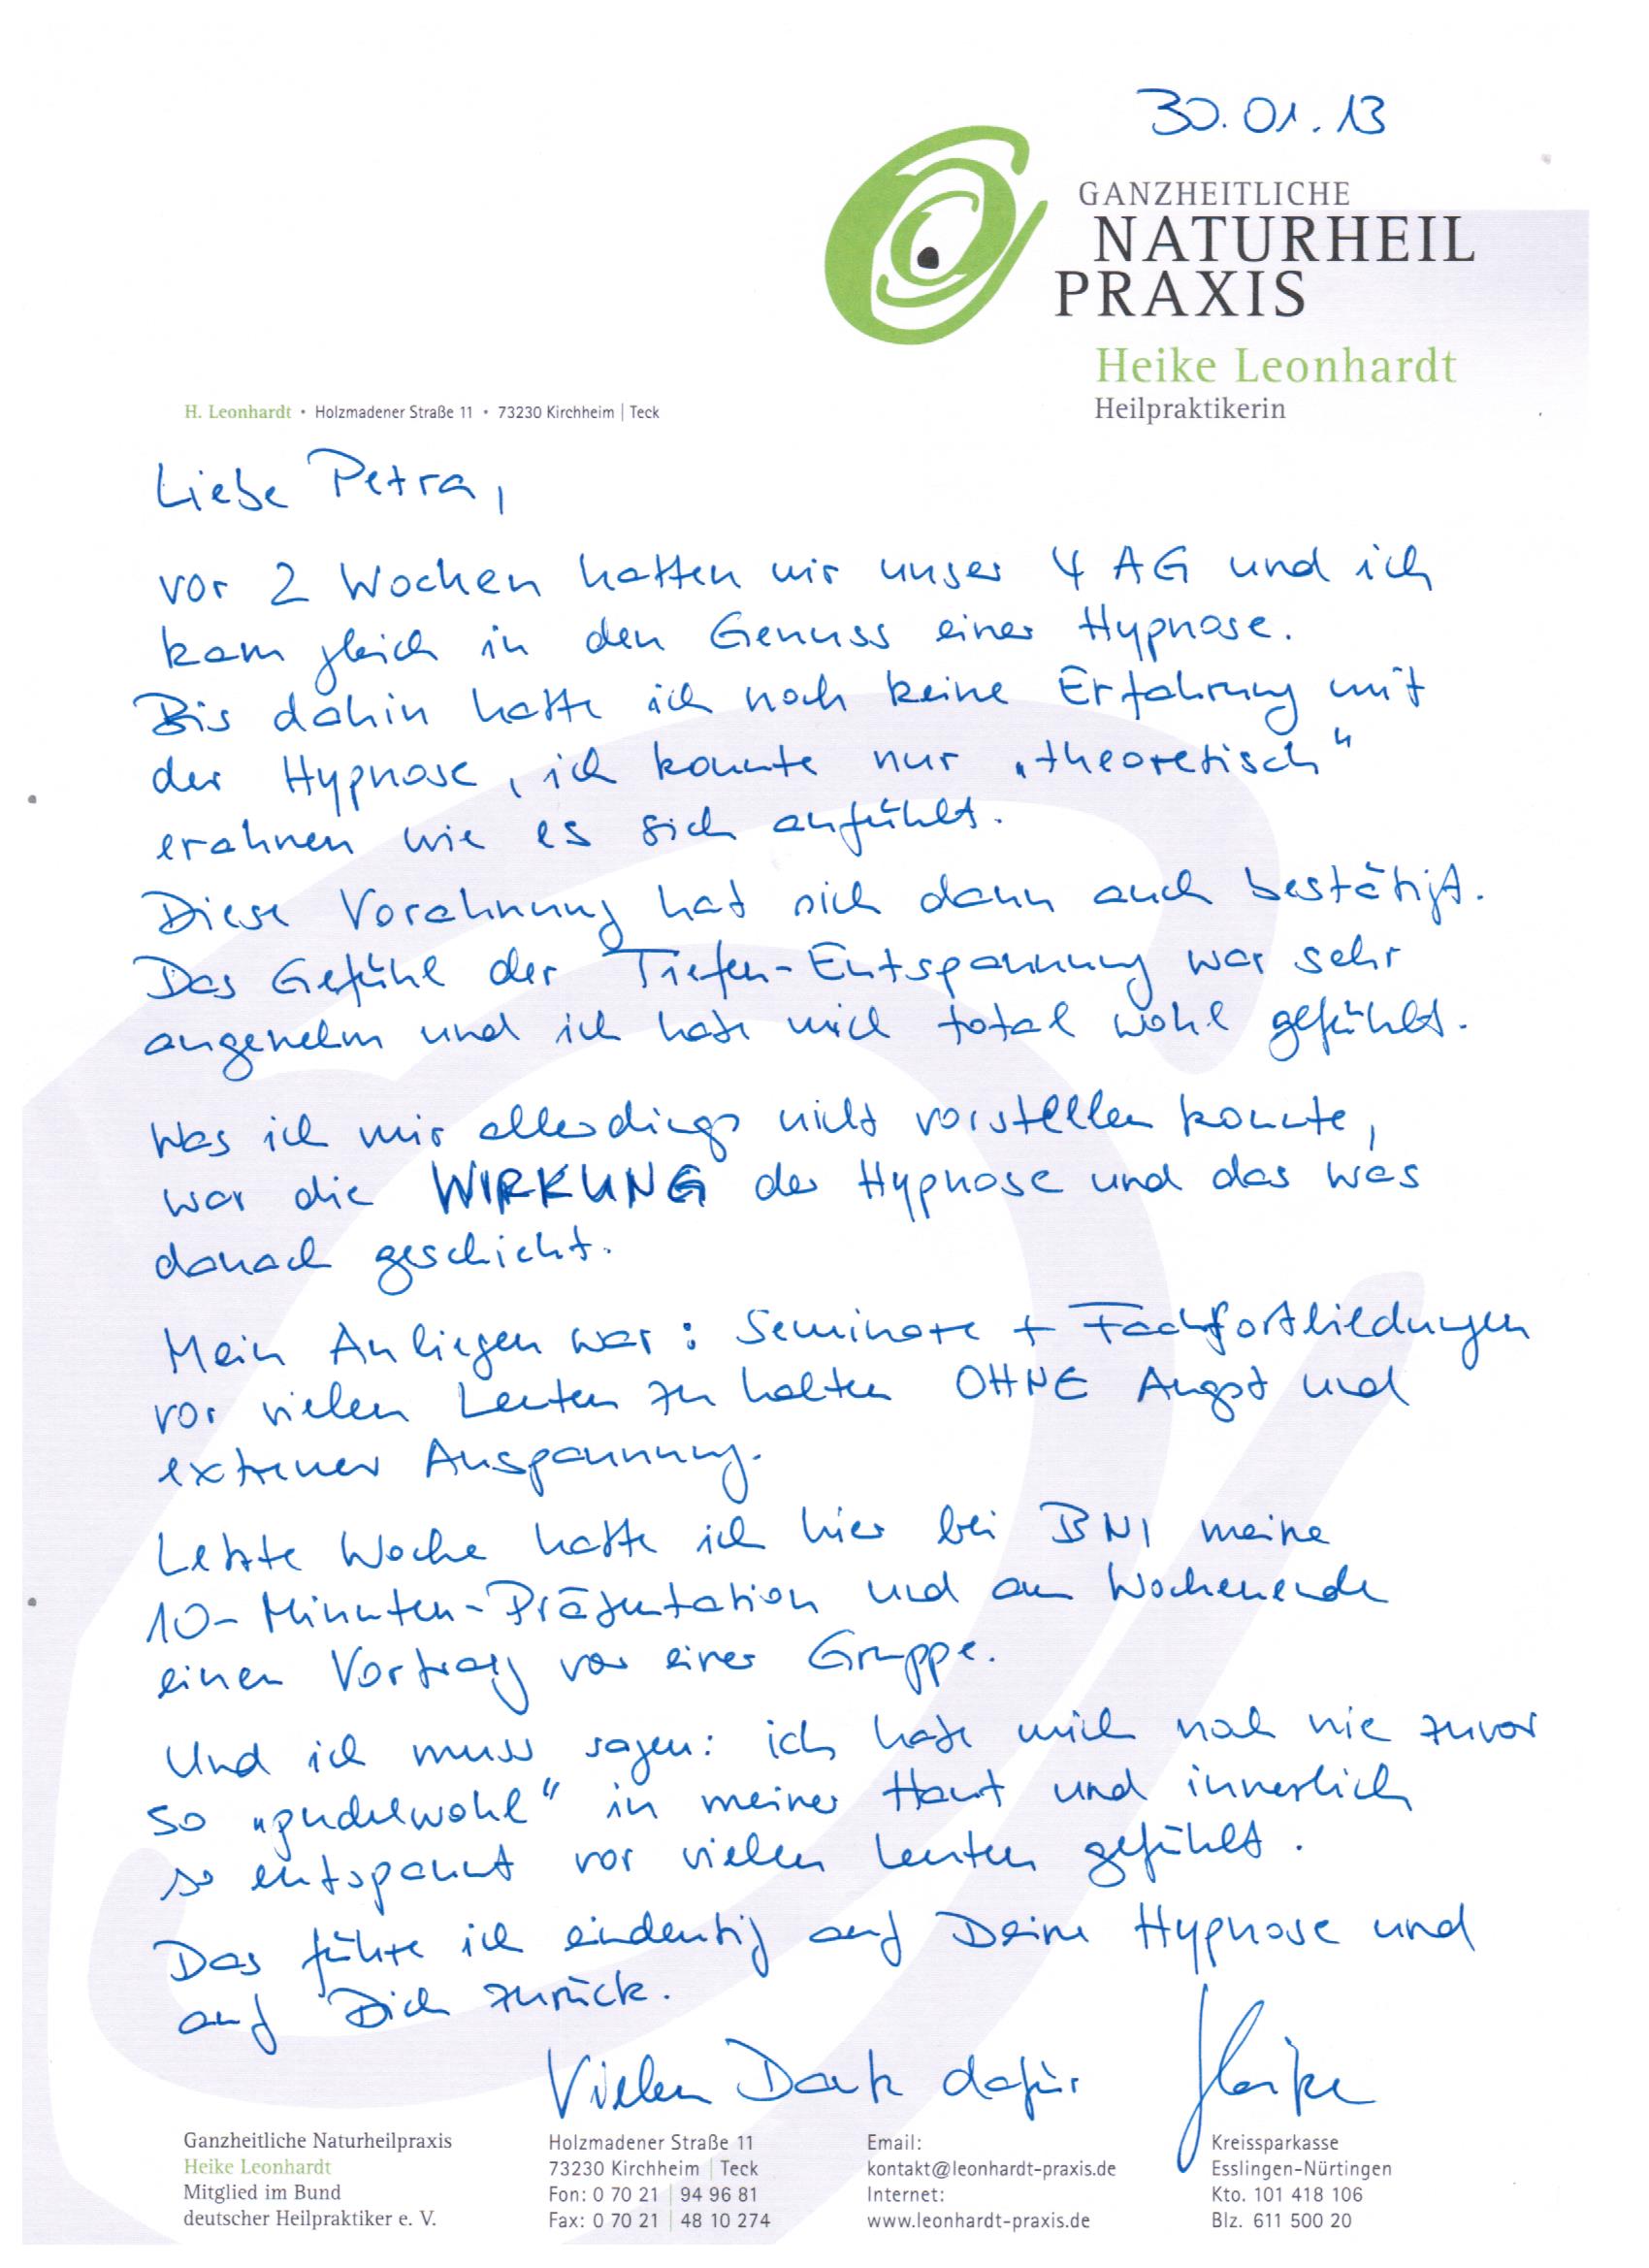 30.01.13
GANZHEITLICHE
NATURHEIL
PRAXIS
Heike Leonhardt
Heilpraktikerin
H. Leonhardt • Holzmadener Straße 11 • 73230 Kirchheim | Teck
Liebe Petra,
vor 2 Wochen hatten wir unser 4 AG und ich
kam gleich in den Genuss einer Hypnose.
Bis dahin hatte ich noch keine Erfahrung mit
der Hypnose, ich konnte nur „theoretisch“
erahnen wie es sich anfühlt.
Diese Vorahnung hat sich dann auch bestätigt.
Das Gefühl der Tiefen-Entspannung war sehr
angenehm und ich habe mich total wohl gefühlt.
Was ich mir allerdings nicht vorstellen konnte,
war die WIRKUNG der Hypnose und das was
danach geschieht.
Mein Anliegen war: Seminare + Fachfortbildungen
vor vielen Leuten zu halten OHNE Angst und
extremer Anspannung.
Letzte Woche hatte ich hier bei BNI meine
10-Minuten-Präsentation und am Wochenende
einen Vortrag vor einer Gruppe.
Und ich muss sagen: ich habe mich noch nie zuvor
so „pudelwohl“ in meiner Haut und innerlich
so entspannt vor vielen Leuten gefühlt.
Das führe ich eindeutig auf Deine Hypnose und
auf Dich zurück.
Vielen Dank dafür Heike
Ganzheitliche Naturheilpraxis
Heike Leonhardt
Mitglied im Bund
deutscher Heilpraktiker e. V.
Holzmadener Straße 11
73230 Kirchheim | Teck
Fon: 0 70 21 | 94 96 81
Fax: 0 70 21 | 48 10 274
Email:
kontakt@leonhardt-praxis.de
Internet:
www.leonhardt-praxis.de
Kreissparkasse
Esslingen-Nürtingen
Kto. 101 418 106
Blz. 611 500 20